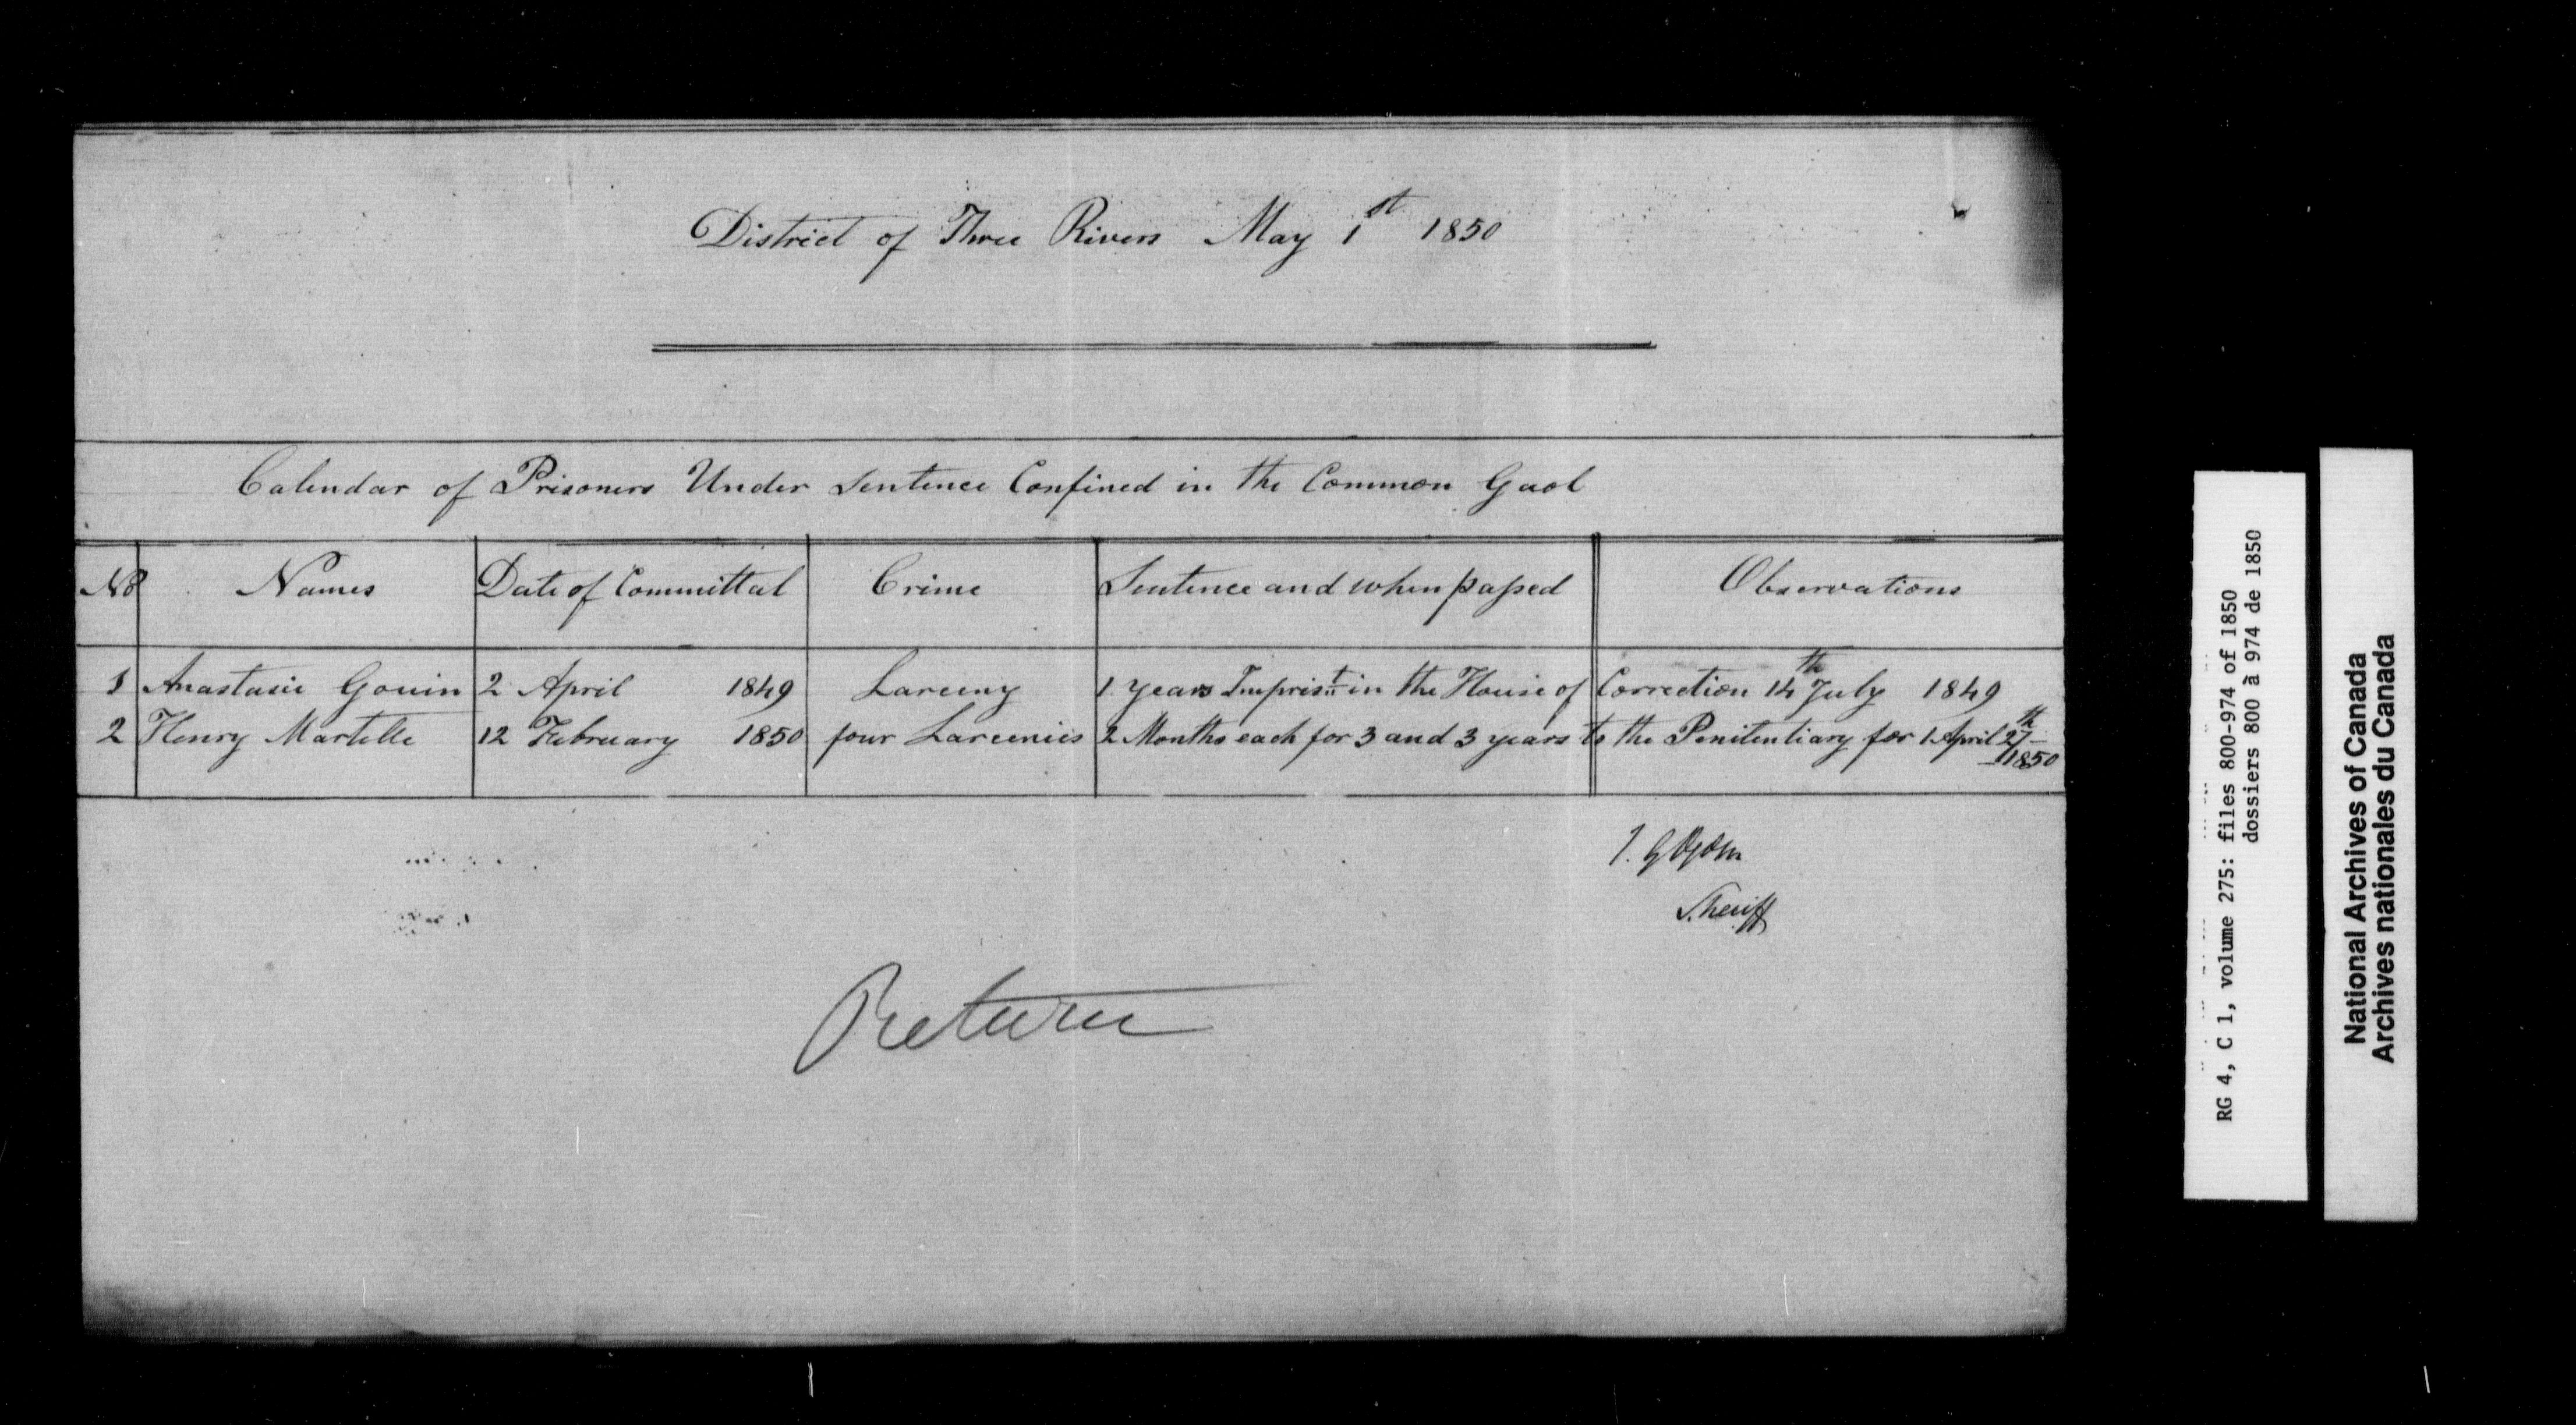 District of Three Rivers May 1st 1850
Calendar of Prisoners Under Sentence Confined in the Common Gaol
No Names Date of Committal Crime Sentence and when passed Observations
1 Anastasie Gouin 2 April 1849 Larceny 1 years Imprist in the House of Correction 14th July 1849
2 Henry Martelle 12 February 1850 four Larcenies 2 Months each for 3 and 3 years to the Penitentiary for 1 April 27th 1850
I. G Ogden
Sheriff
Return
RG 4, C 1, volume 275: files 800-974 of 1850
dossiers 800 à 974 de 1850
National Archives of Canada
Archives nationales du Canada